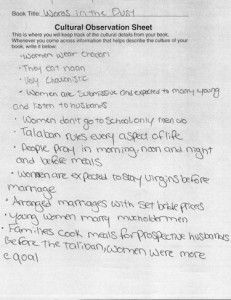 Book Title: Words in the Dust
Cultural Observation Sheet
This is where you will keep track of the cultural details from your book.
Whenever you come across information that helps describe the culture of your
book, write it below:
-Women wear chadri
-They eat naan
-Very Chauvinistic
-Women are submissive and expected to marry young
and listen to husbands
• Women don't go to school, only men do
• Taliban rules every aspect of life
• People pray in morning, noon and night
and before meals
• Women are expected to stay virgins before
marriage
• Arranged marriages with set bride prices
• young women marry much older men
• Families cook meals for prospective husbands
Before the Taliban, women were more
equal